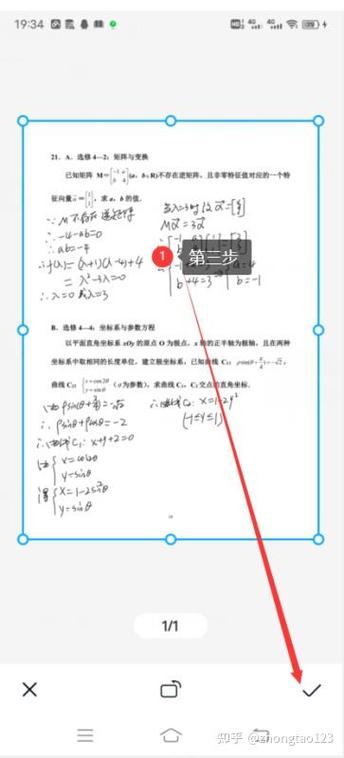 19:34
21. A. 选修 4—2：矩阵与变换
已知矩阵 M=[-1 a; b 4](a，b∈R)不存在逆矩阵，且非零特征值对应的一个特
征向量α=[1; 1]，求 a，b 的值.
∵ M不存在逆矩阵
∴ -4-ab=0
∴ ab=-4
∴ f(λ)=(λ+1)(λ-4)+4
= λ²-3λ=0
∴ λ=0 或 λ=3
当λ=3时
Mα=3α
1 第三步
a=4
b+4=3
b=-1
B. 选修 4—4：坐标系与参数方程
以平面直角坐标系 xOy 的原点 O 为极点，x 轴的正半轴为极轴，且在两种
坐标系中取相同的长度单位，建立极坐标系，已知曲线 C₁： ρsin(θ+π/4)=-√2，
曲线 C₂： { x=cos2θ y=sinθ （θ为参数），求曲线 C₁、C₂ 交点的直角坐标.
ρsin(θ+π/4)=-√2
∴ ρsinθ+ρcosθ=-2
∴ 曲线 C₁: x+y+2=0
x=cos2θ
y=sinθ
得 { x=1-2sin²θ
y=sinθ
∴ 曲线 C₂: x=1-2y²
(-1≤y≤1)
1/1
知乎 @zhongtao123